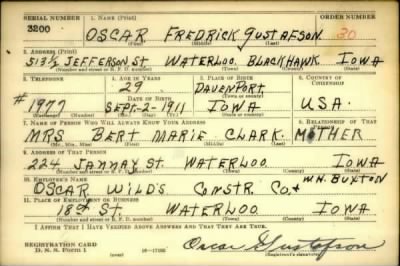 SERIAL NUMBER 1. NAME (Print) ORDER NUMBER
3200 OSCAR FREDRICK GUSTAFSON 30
(First) (Middle) (Last)
2. ADDRESS (Print)
519½ JEFFERSON ST WATERLOO BLACKHAWK IOWA
(Number and street or R. F. D. number) (Town) (County) (State)
3. TELEPHONE 4. AGE IN YEARS 5. PLACE OF BIRTH 6. COUNTRY OF CITIZENSHIP
29 DAVENPORT
DATE OF BIRTH (Town or county)
# 1977 SEPT-2-1911 IOWA USA.
(Exchange) (Number) (Mo.) (Day) (Yr.) (State or country)
7. NAME OF PERSON WHO WILL ALWAYS KNOW YOUR ADDRESS 8. RELATIONSHIP OF THAT PERSON
MRS BERT MARIE CLARK. MOTHER
(Mr., Mrs., Miss) (First) (Middle) (Last)
9. ADDRESS OF THAT PERSON
224 ST. WATERLOO IOWA
(Number and street or R. F. D. number) (Town) (County) (State)
10. EMPLOYER'S NAME W.H. BUXTON
OSCAR WILDS CONSTR. CO.+
11. PLACE OF EMPLOYMENT OR BUSINESS
18th ST. WATERLOO IOWA
(Number and street or R. F. D. number) (Town) (County) (State)
I AFFIRM THAT I HAVE VERIFIED ABOVE ANSWERS AND THAT THEY ARE TRUE.
REGISTRATION CARD
D. S. S. Form 1 (over) 16—17105 Oscar Gustafson
(Registrant's signature)